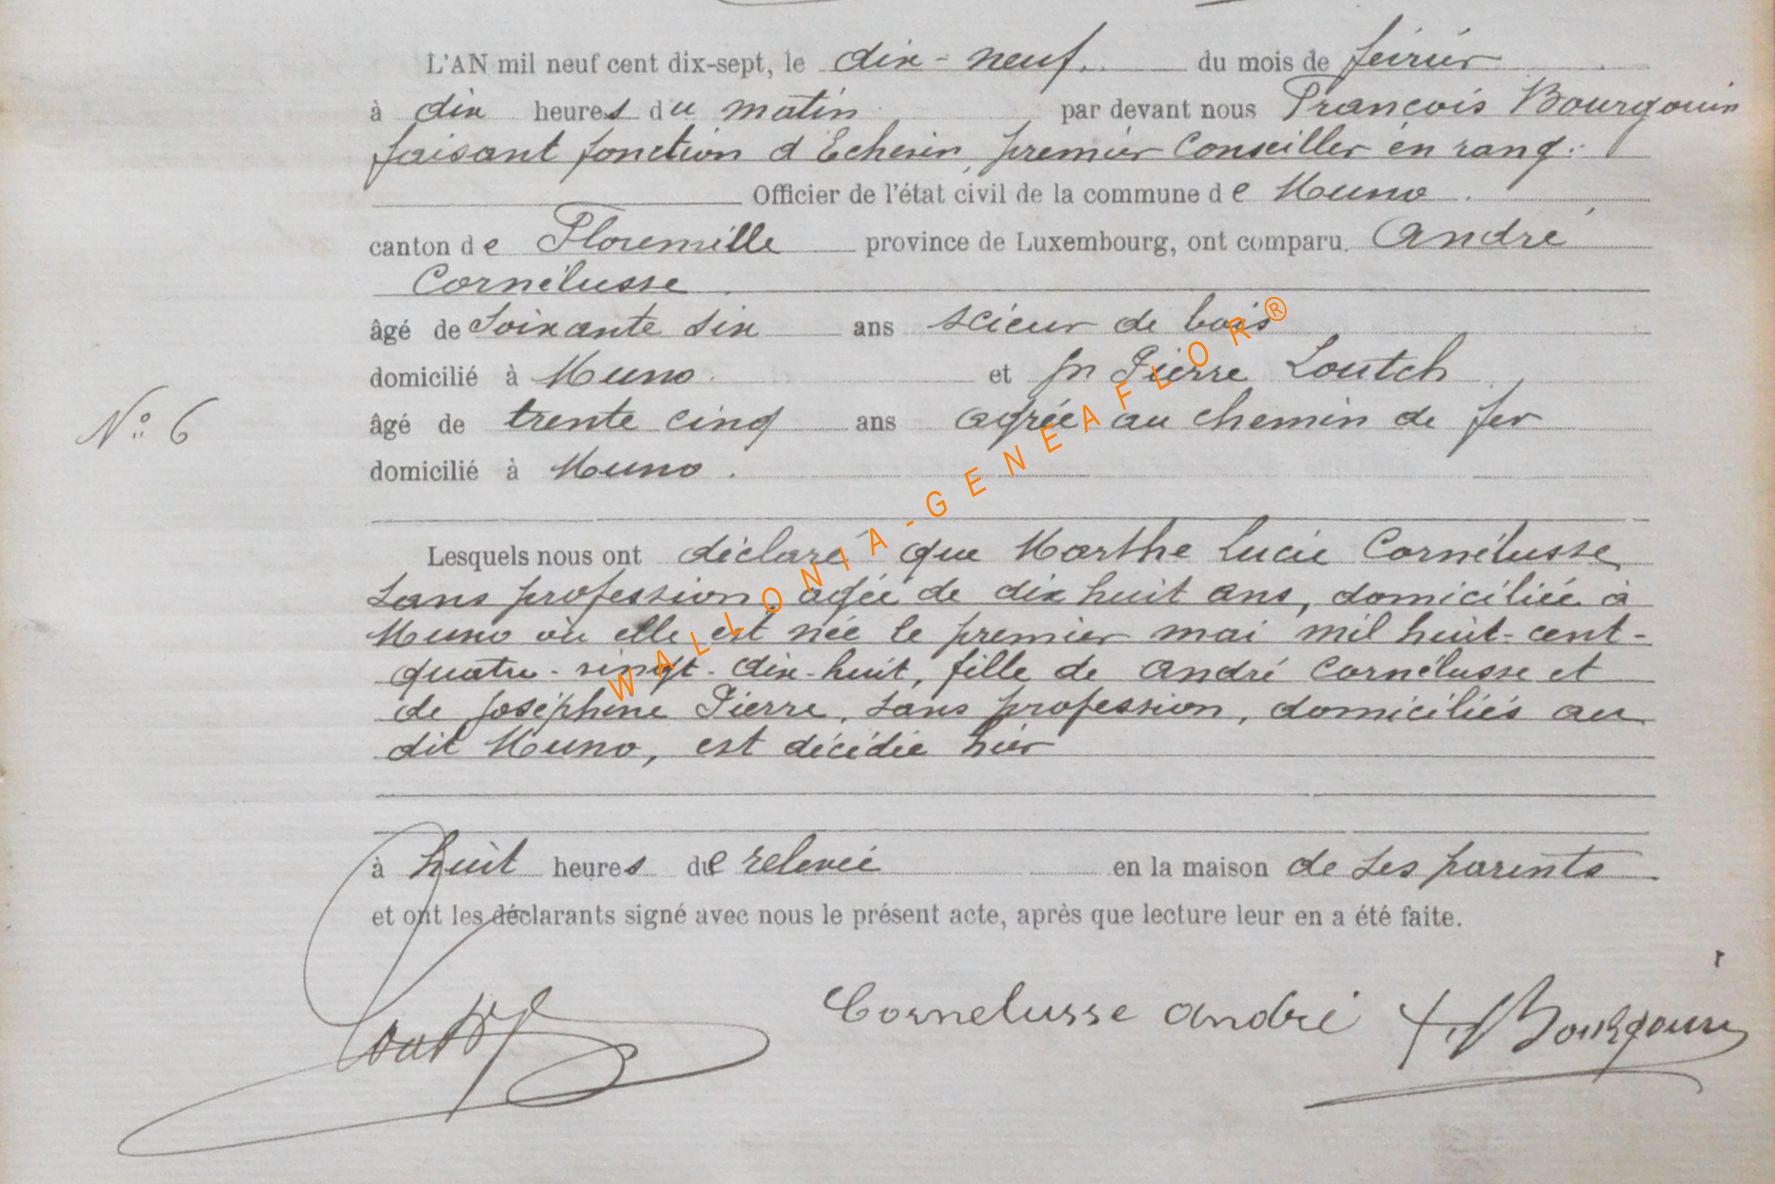 L'AN mil neuf cent dix-sept, le dix-neuf. du mois de février
à dix heures du matin par devant nous François Bourgouin
faisant fonction d'Echevin, premier Conseiller en rang.
Officier de l'état civil de la commune de Muno.
canton de Florenville province de Luxembourg, ont comparu. André
Cornélusse.
âgé de Soixante six ans scieur de bois
domicilié à Muno. et Jn Pierre Loutch
N° 6
âgé de trente cinq ans agréé au chemin de fer
domicilié à Muno.
Lesquels nous ont déclaré que Marthe Lucie Cornélusse,
sans profession, agée de dix huit ans, domiciliée à
Muno où elle est née le premier mai mil huit-cent-
quatre-vingt-dix-huit, fille de André Cornélusse et
de Joséphine Pierre, sans profession, domiciliés au
dit Muno, est décédée hier
à huit heures de relevée en la maison de ses parents
et ont les déclarants signé avec nous le présent acte, après que lecture leur en a été faite.
Cornelusse andré Bourgouin
WALLONIA-GENEAFLOR®